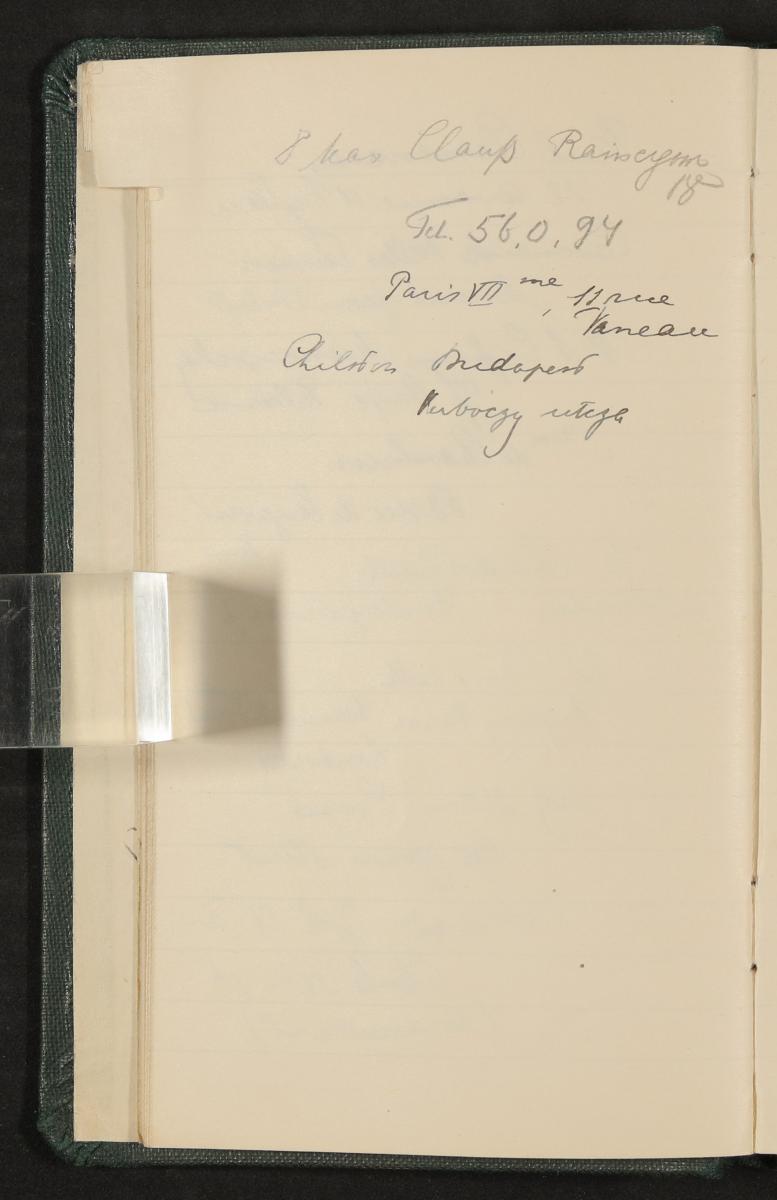 Max Clauß
18
Tel. 56.0.94
Paris VII me, 11 rue
Vaneau
Budapest
utcza